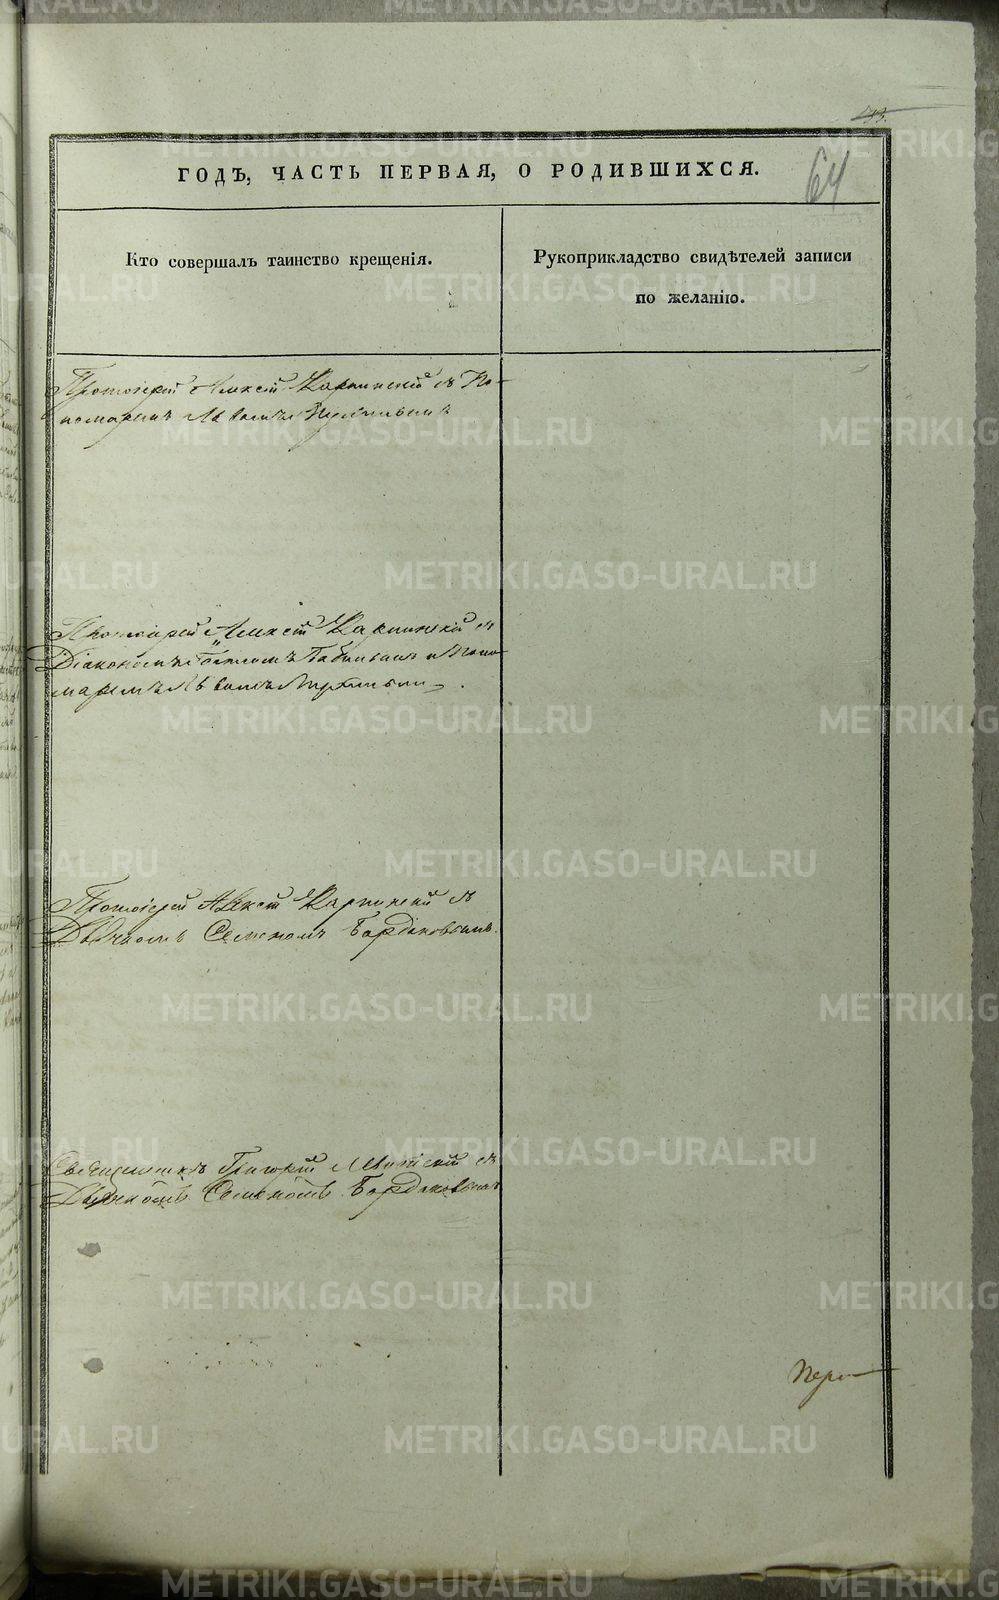 64
ГОДЪ, ЧАСТЬ ПЕРВАЯ, О РОДИВШИХСЯ.
Кто совершалъ таинство крещенія.
Рукоприкладство свидѣтелей записи
по желанію.
Протоіерей Алексѣй Карпинскій съ По-
номаремъ
Протоіерей Алексѣй Карпинскій съ
Діакономъ и Поно
маремъ
Протоіерей Алексѣй Карпинскій съ
Дьячкомъ Семеномъ Бордаковымъ.
Священникъ Григорій Левитскій съ
Дьячкомъ Семеномъ Бордаковымъ
METRIKI.GASO-URAL.RU